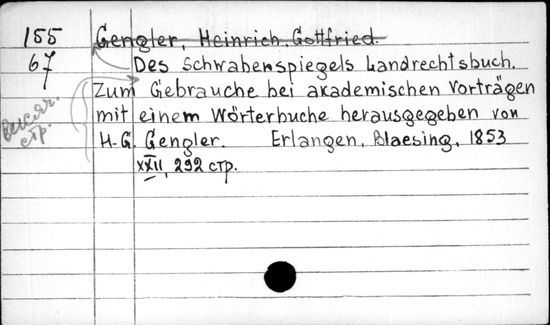 155 Gengler, Heinrich Gottfried.
67 Des Schwabenspiegels Landrechtsbuch.
Zum Gebrauche bei akademischen Vorträgen
mit einem Wörterbuche herausgegeben von
H-G. Gengler. Erlangen, Blaesing, 1853
XXII, 292 стр.
стр.